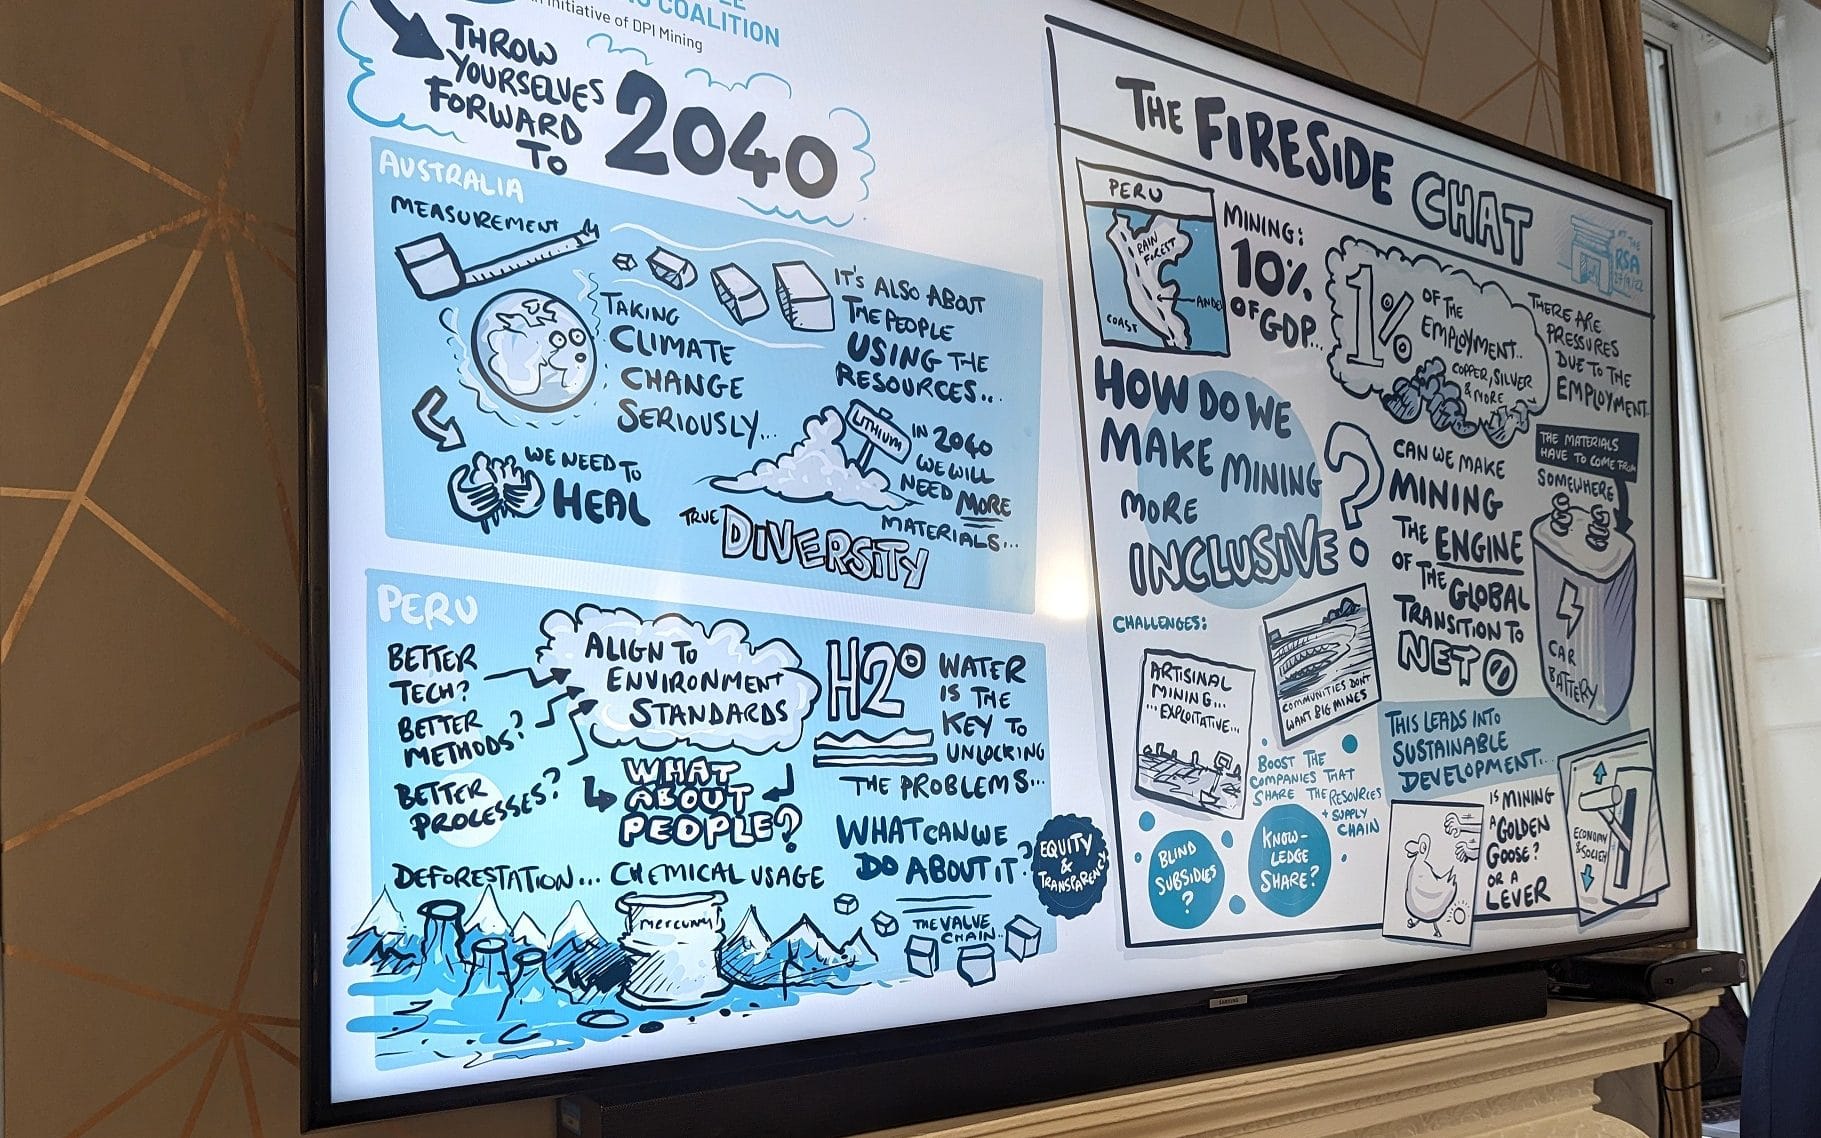 COALITION
Initiative of DPI Mining
THROW
YOURSELVES
FORWARD
TO
2040
AUSTRALIA
MEASUREMENT
TAKING
CLIMATE
CHANGE
SERIOUSLY...
IT'S ALSO ABOUT
THE PEOPLE
USING THE
RESOURCES...
WE NEED TO
HEAL
LITHIUM
IN 2040
WE WILL
NEED MORE
MATERIALS...
TRUE DIVERSITY
PERU
BETTER
TECH?
BETTER
METHODS?
BETTER
PROCESSES?
ALIGN TO
ENVIRONMENT
STANDARDS
WHAT
ABOUT
PEOPLE?
H2O
WATER
IS THE
KEY TO
UNLOCKING
THE PROBLEMS...
WHAT CAN WE
DO ABOUT IT?
EQUITY
&
TRANSPARENCY
DEFORESTATION... CHEMICAL USAGE
MERCURY
THE VALUE
CHAIN...
THE FIRESIDE CHAT
AT THE
RSA
PERU
RAIN
FOREST
ANDES
COAST
MINING:
10%
OF GDP...
1%
OF THE
EMPLOYMENT..
COPPER, SILVER
& MORE
THERE ARE
PRESSURES
DUE TO THE
EMPLOYMENT
HOW DO WE
MAKE MINING
MORE
INCLUSIVE?
CAN WE MAKE
MINING
THE ENGINE
OF THE GLOBAL
TRANSITION TO
NET 0
THE MATERIALS
HAVE TO COME FROM
SOMEWHERE
CAR
BATTERY
CHALLENGES:
ARTISINAL
MINING...
...EXPLOITATIVE...
COMMUNITIES DON'T
WANT BIG MINES
BOOST THE
COMPANIES THAT
SHARE THE RESOURCES
+ SUPPLY
CHAIN
BLIND
SUBSIDIES
?
KNOW-
LEDGE
SHARE?
THIS LEADS INTO
SUSTAINABLE
DEVELOPMENT...
IS MINING
A GOLDEN
GOOSE?
OR A
LEVER
ECONOMY
& SOCIETY
SAMSUNG